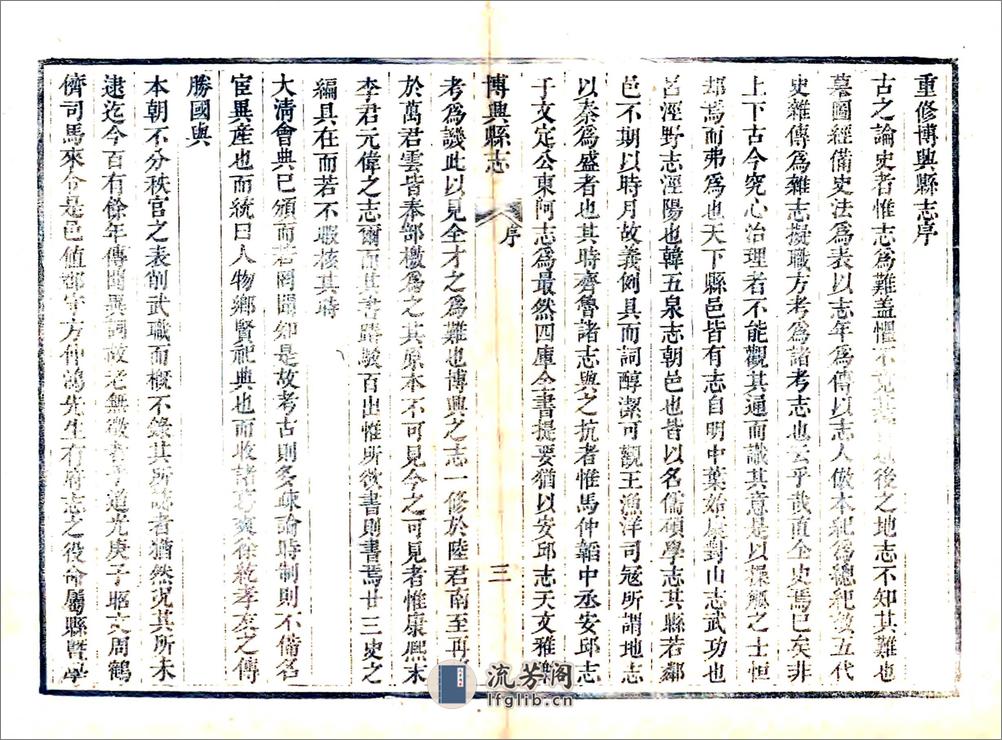 重修博興縣志序
古之論史者惟志為難蓋懼不克其後之地志不知其難也
纂圖經備史法為表以志年為傳以志人倣本紀為總紀襲五代
史雜傳為雜志擬職方考為諸考志也云乎哉直全史焉已矣非
上下古今究心治理者不能觀其通而識其意是以操觚之士恒
却焉而弗為也天下縣邑皆有志自明中葉始康對山志武功也
呂涇野志涇陽也韓五泉志朝邑也皆以名儒碩學志其縣若鄰
邑不期以時月故義例具而詞醇潔可觀王漁洋司寇所謂地志
以秦為盛者也其時齊魯諸志與之抗者惟馬仲韜中丞安邱志
于文定公東阿志為最然四庫全書提要猶以安邱志天文雅
博興縣志
序
三
考為譏此以見全才之為難也博興之志一修於陸君南至再
於萬君雲皆奉部檄為之其原本不可見今之可見者惟康熙末
李君元偉之志爾而其書踳駁百出惟所徵書則書焉廿三史之
編具在而若不暇核其時
大清會典已頒而若罔聞知是故考古則多疎論時制則不備名
宦異產也而統曰人物鄉賢祀典也而收諸徐乾孝友之傳
勝國與
本朝不分秩官之表削武職而槪不錄其所誌者猶然況其所未
逮迄今百有餘年傳聞異詞故老無徵道光庚子昭文周鶴
儕司馬來令是邑值郡守方仲鴻先生有府志之役命屬縣暨學
流芳閣
lfglib.cn